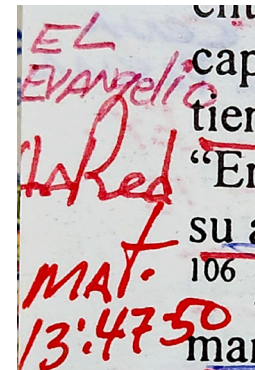 EL
EVANgeliO
LA Red
MAT.
13:47-50
cap
tien
“En
su a
106
man